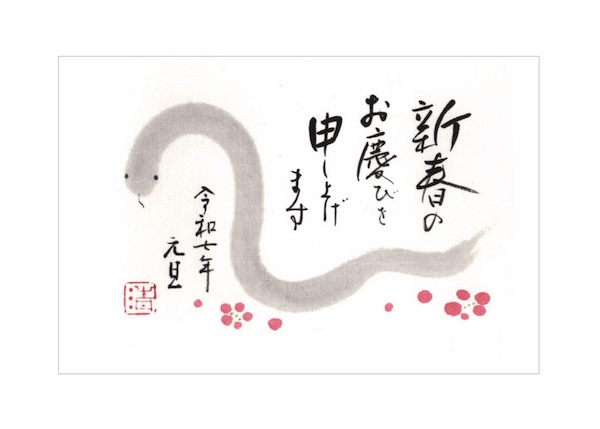 新春の
お慶びを
申し上げ
ます
令和七年
元旦